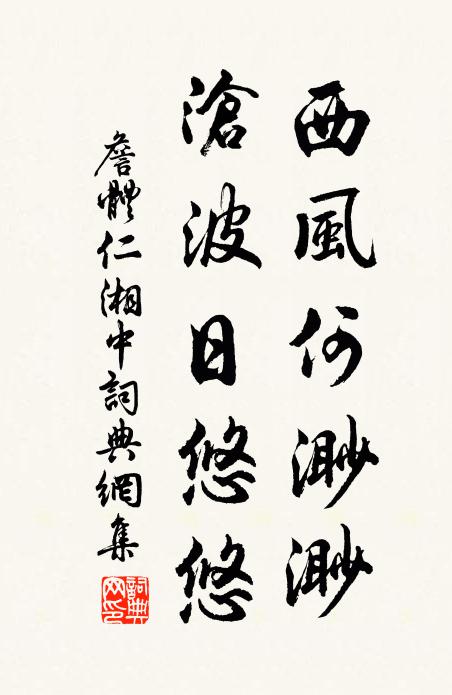 西風何渺渺
滄波日悠悠
詹體仁湘中詞典網集
詞典網印